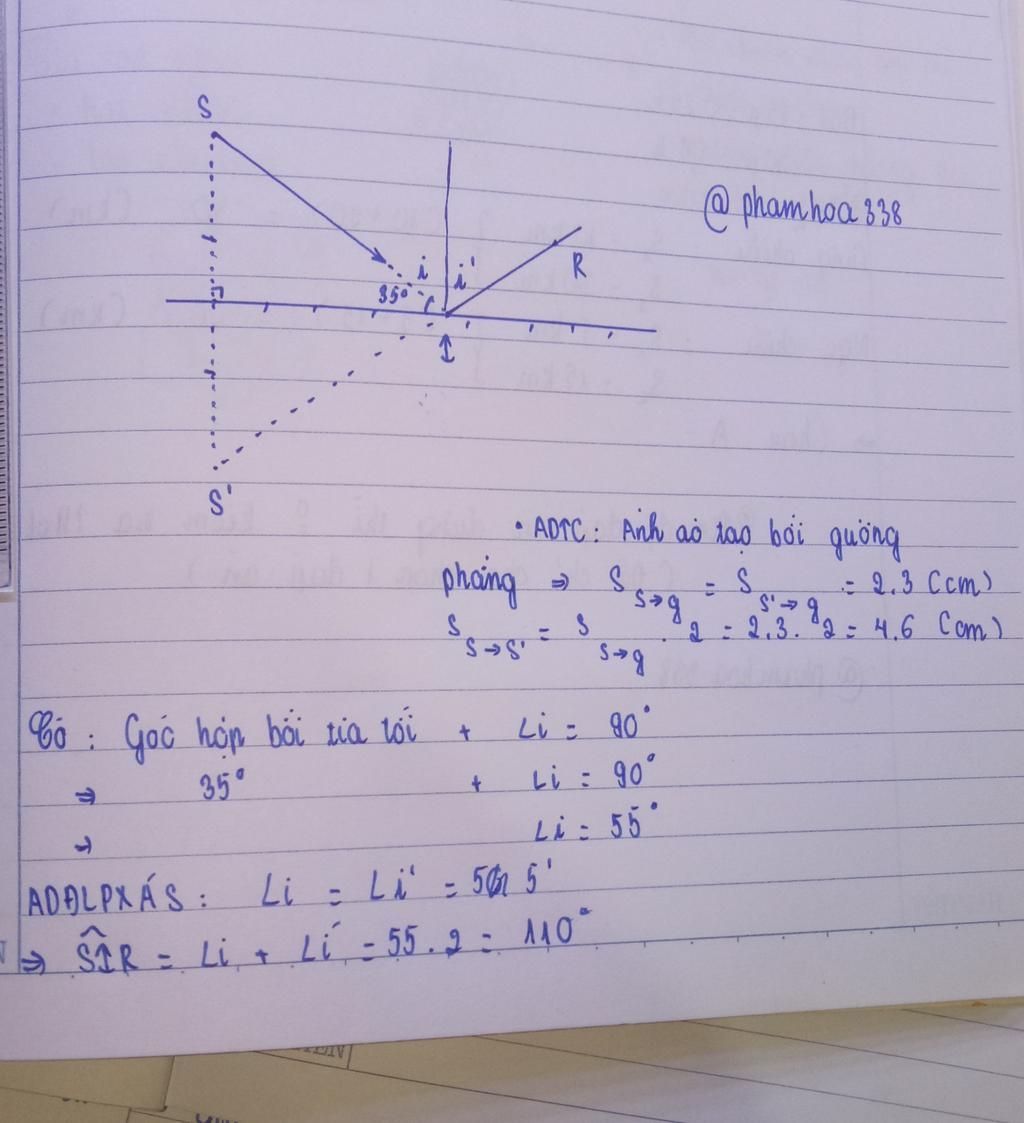 S
@ phamhoa 338
i i'
R
35°
I
S'
• ADTC: Ảnh ảo tạo bởi gương
phẳng ⇒ S S→g = S S'→g = 2.3 (cm)
S S→S' = S S→g . 2 = 2.3. 2 = 4.6 (cm)
Có : Góc hợp bởi tia tới + Li = 90°
⇒ 35° + Li = 90°
→ Li = 55°
ADĐLPXÁS : Li = Li' = 55'
⇒ SIR = Li + Li' = 55. 2 = 110°